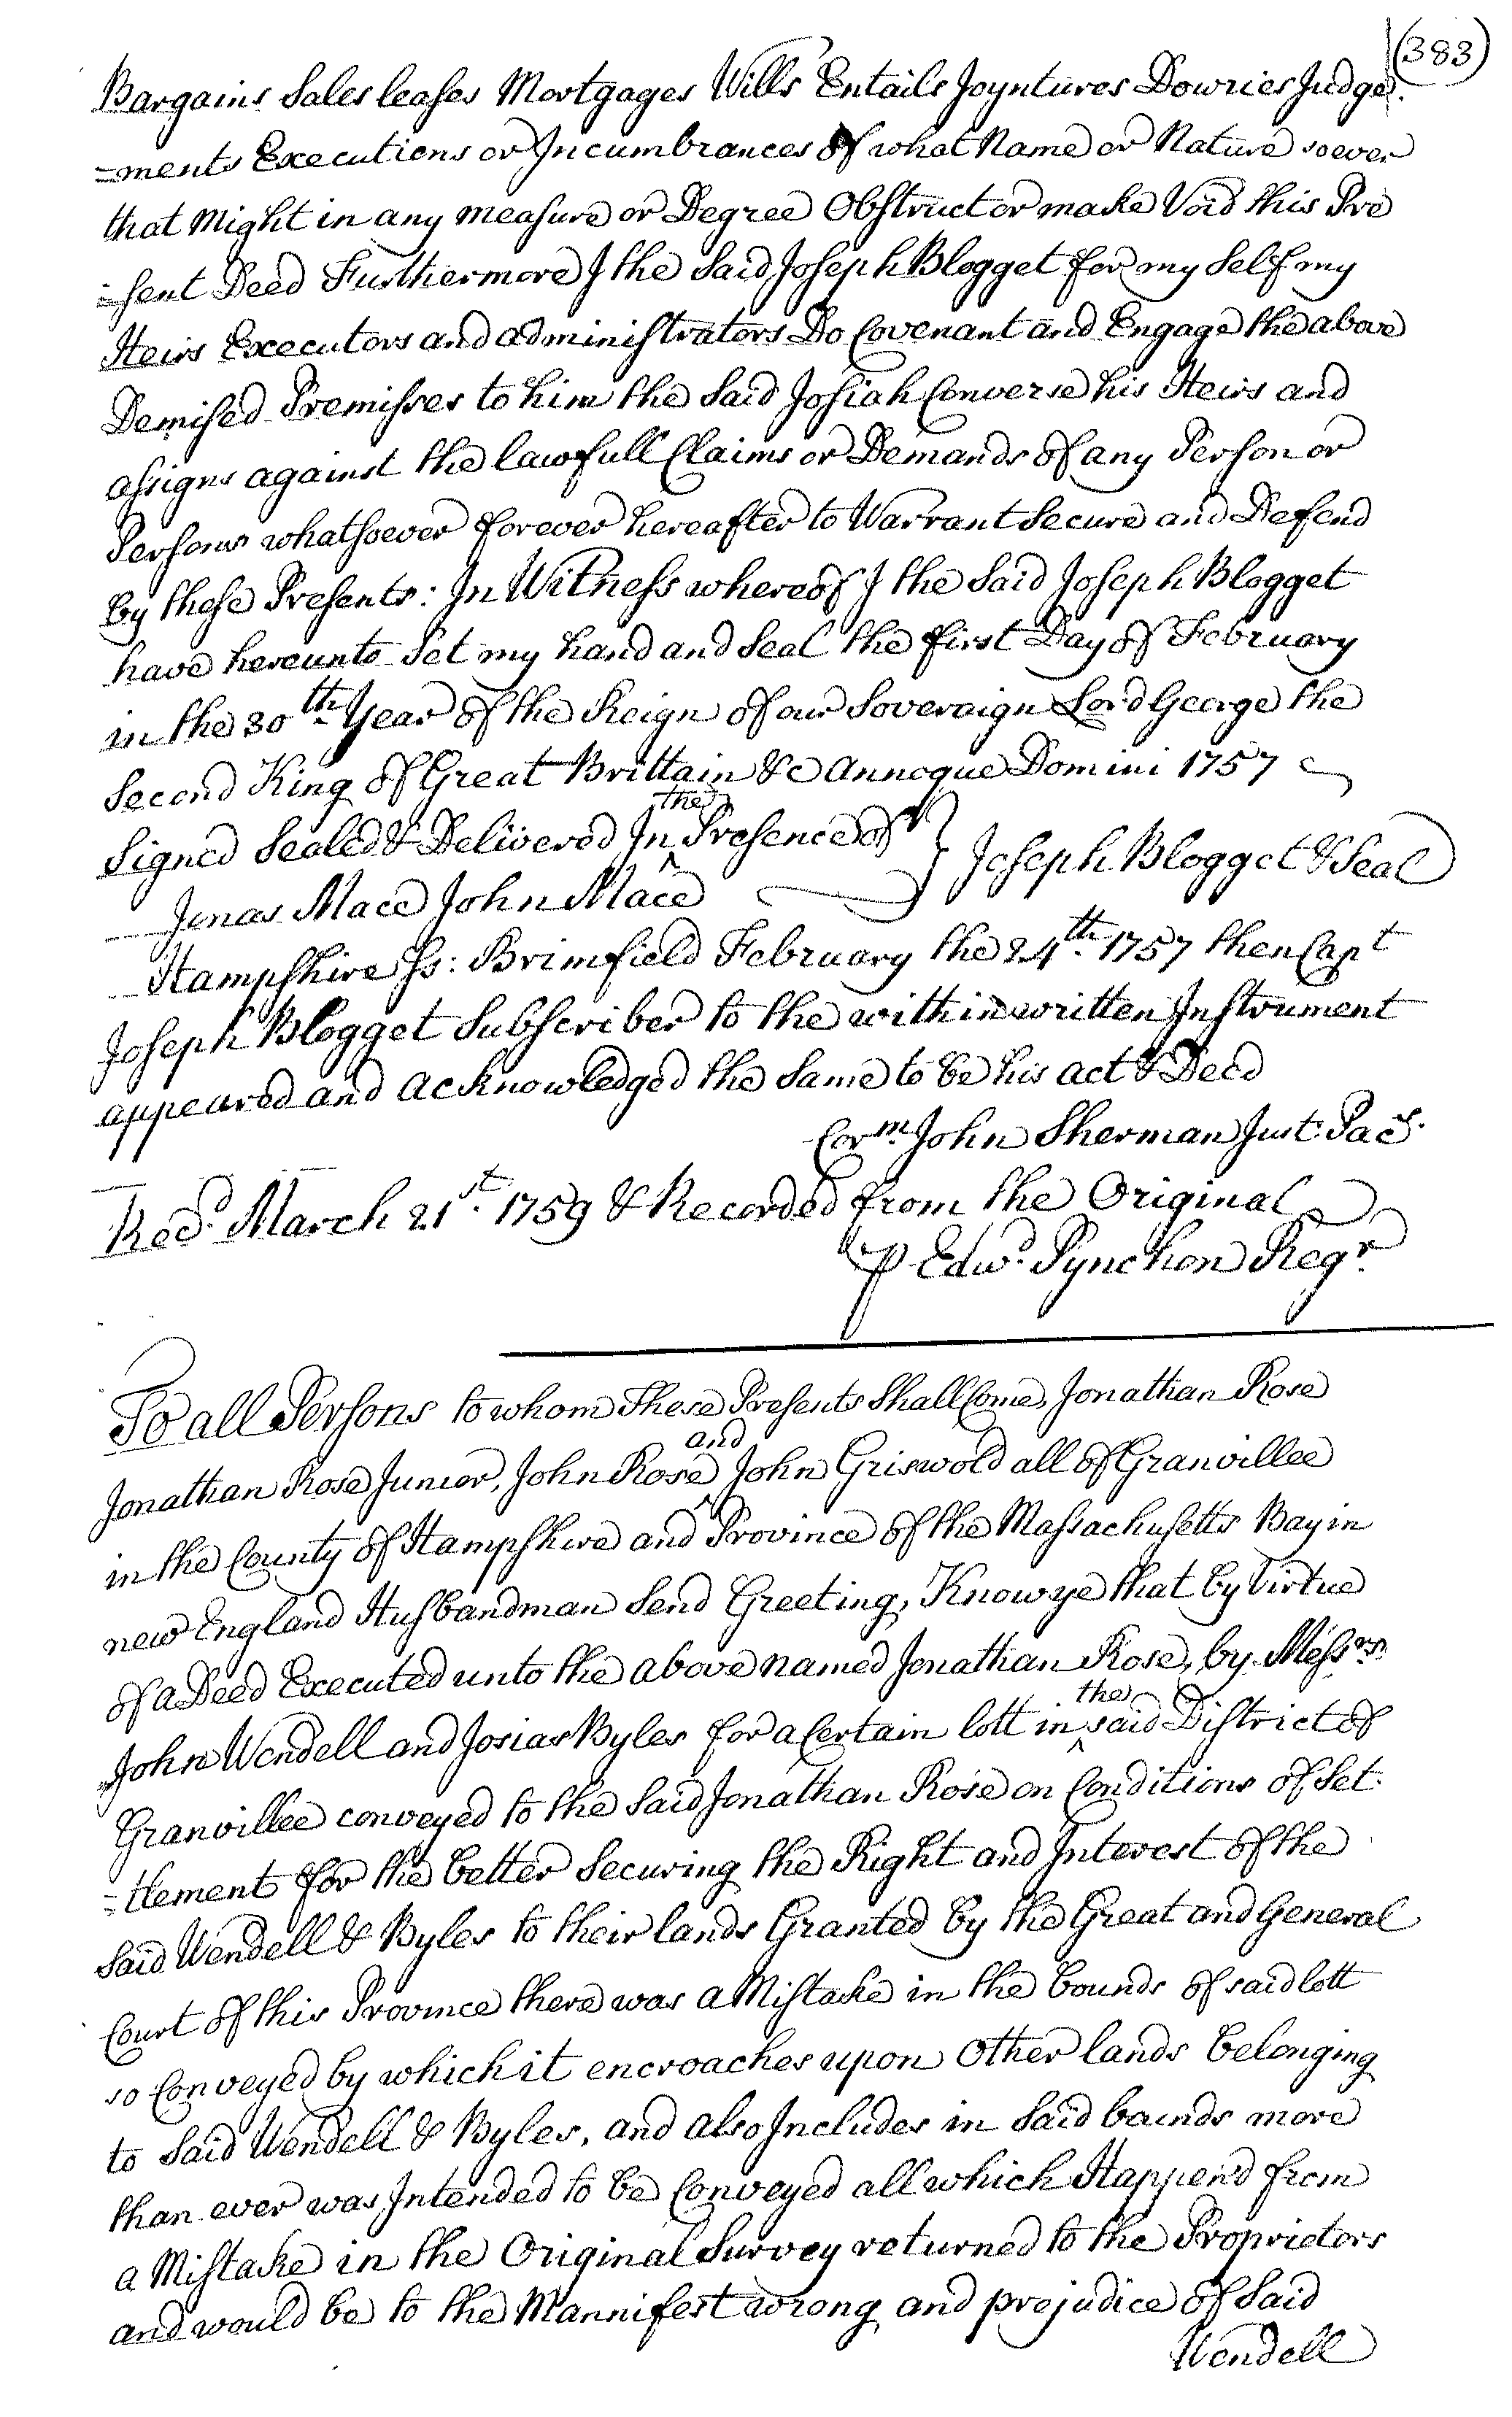 (383)
Bargains Sales leases Mortgages Wills Entails Joyntures Dowries Judge
=ments Executions or Incumbrances of what Name or Nature soever
that Might in any measure or Degree Obstruct or make Void this Pre
=sent Deed Furthermore I the Said Joseph Blogget for my Self my
Heirs Executors and administrators Do Covenant and Engage the above
Demised Premisses to him the Said Josiah Converse his Heirs and
assigns against the lawfull Claims or Demands of any Person or
Persons whatsoever forever hereafter to Warrant Secure and Defend
by these Presents: In Witness whereof I the Said Joseph Blogget
have hereunto Set my hand and Seal the first Day of February
in the 30th Year of the Reign of our Soveraign Lord George the
Second King of Great Brittain &c Annoque Domini 1757
Signed Sealed & Delivered In the Presence of } Joseph Blogget & Seal
Jonas Mace John Mace
Hampshire Ss: Brimfield February the 24th 1757 then Capt
Joseph Blogget Subscriber to the within written Instrument
appeared and acknowledged the Same to be his act & Deed
Corm John Sherman Just: Pacs.
Recd. March 21st. 1759 & Recorded from the Original
p Edwd. Pynchon Regr.
To all Persons to whom These Presents Shall Come, Jonathan Rose
Jonathan Rose Junior, John Rose and John Griswold all of Granvillee
in the County of Hampshire and Province of the Massachusetts Bay in
new England Husbandman Send Greeting, Know ye that by Virtue
of a Deed Executed unto the above named Jonathan Rose, by Messrs.
John Wendell and Josias Byles for a Certain lott in the said District of
Granvillee conveyed to the Said Jonathan Rose on Conditions of Set:
=tlement for the better Securing the Right and Interest of the
Said Wendell & Byles to their lands Granted by the Great and General
Court of this Province there was a Mistake in the bounds of said lott
so Conveyed by which it encroaches upon Other lands belonging
to Said Wendell & Byles, and also Includes in Said bounds more
than ever was Intended to be Conveyed all which Happen'd from
a Mistake in the Original Survey returned to the Proprietors
and would be to the Mannifest wrong and prejudice of Said
Wendell